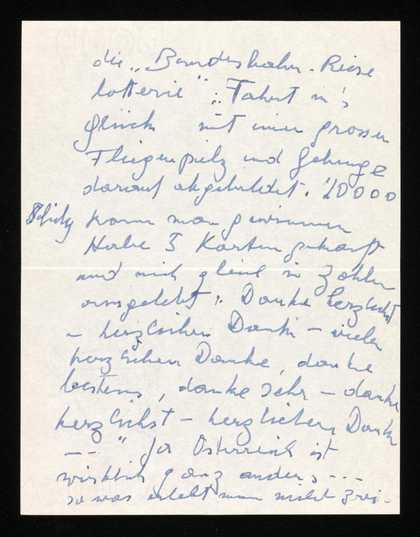 die „Bundesbahn-Riese
lotterie": „Fahrt in's
Glück mit einem grossen
Fliegenpilz und Gebirge
darauf abgebildet. 20000
kann man gewinnen
Habe 5 Karten gekauft
und mich gleich in Zahlen
"Danke herzlichst
– herzlichen Dank – vielen
herzlichen Danke, danke
bestens, danke sehr – danke
herzlichst – herzlichen Dank
– – " Ja Österreich ist
wirklich ganz anders - - -
so was erlebt man nicht zwei-